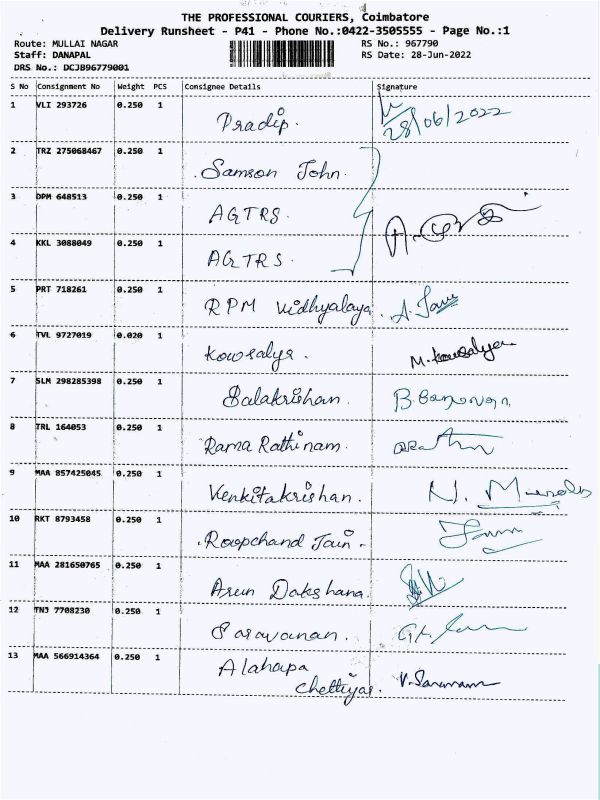 THE PROFESSIONAL COURIERS, Coimbatore
Delivery Runsheet - P41 - Phone No.:0422-3505555 - Page No.:1
Route: MULLAI NAGAR RS No.: 967790
Staff: DANAPAL RS Date: 28-Jun-2022
DRS No.: DCJB96779001
S No Consignment No Weight PCS Consignee Details Signature
1 VLI 293726 0.250 1 Pradip. 28/06/2022
2 TRZ 275068467 0.250 1 Samson John.
3 DPM 648513 0.250 1 AGTRS.
4 KKL 3088049 0.250 1 AGTRS.
5 PRT 718261 0.250 1 RPM Vidhyalaya.
6 TVL 9727019 0.020 1 Kowsalya. M. Kowsalya
7 SLM 298285398 0.250 1 Balakrishan.
8 TRL 164053 0.250 1 Rama Rathinam.
9 MAA 857425045 0.250 1 Venkitakrishan.
10 RKT 8793458 0.250 1 Roopchand Jain.
11 MAA 281650765 0.250 1 Arun Dakshana.
12 TNJ 7708230 0.250 1 Saravanan.
13 MAA 566914364 0.250 1 Alahapa
Chettiyar.